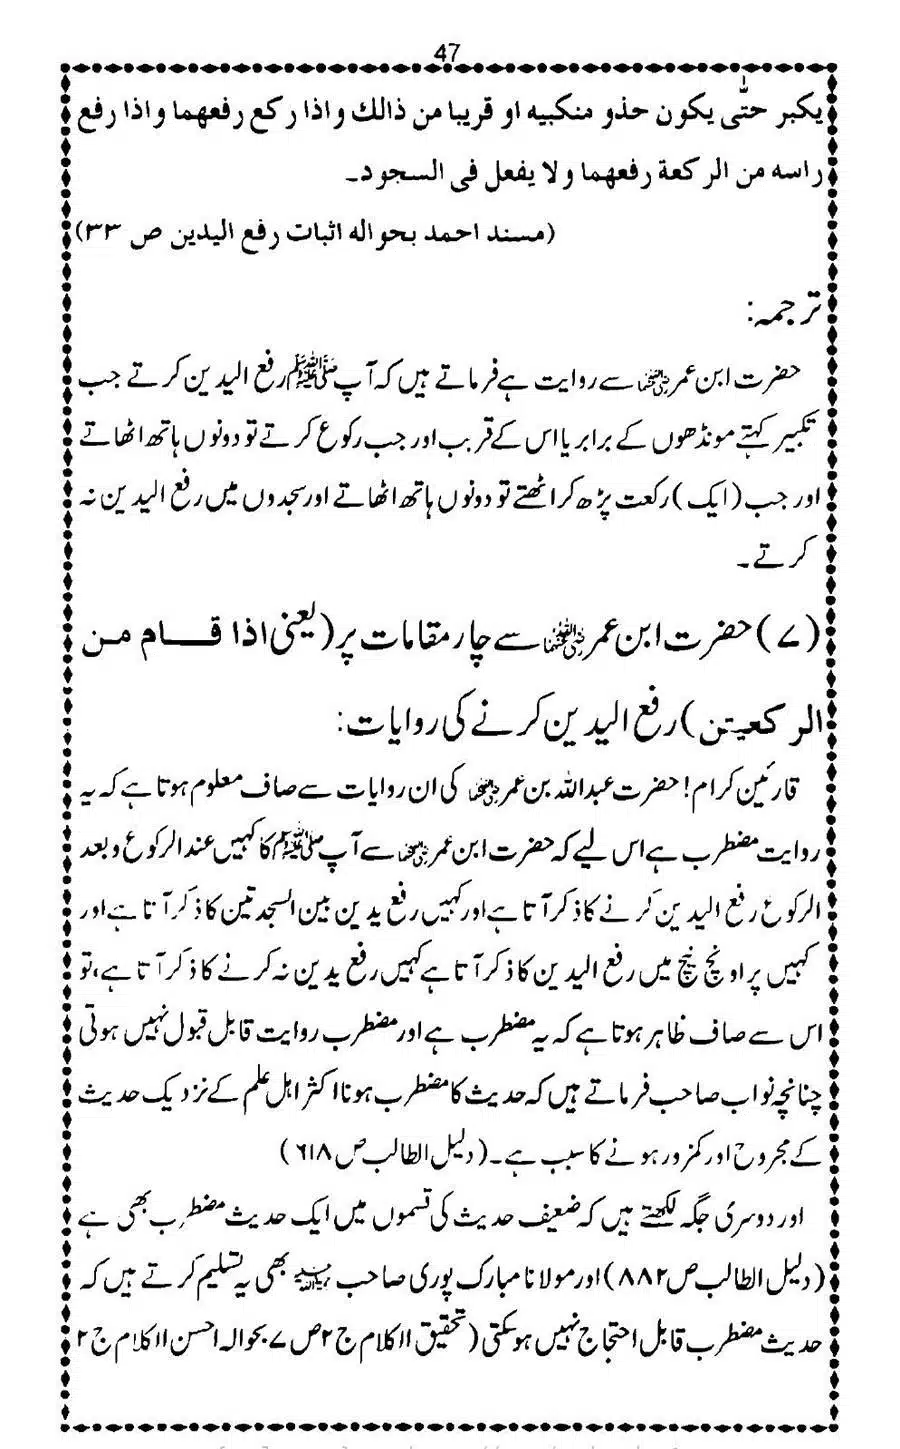 47
یکبر حتّٰی یکون حذو منکبیہ او قریبا من ذالك و اذا رکع رفعھما و اذا رفع
راسہ من الرکعۃ رفعھما ولا یفعل فی السجود۔
(مسند احمد بحوالہ اثبات رفع الیدین ص ۳۳)
ترجمہ:
حضرت ابن عمر رضی اللہ عنہما سے روایت ہے فرماتے ہیں کہ آپ ﷺ رفع الیدین کرتے جب
تکبیر کہتے مونڈھوں کے برابر یا اس کے قریب اور جب رکوع کرتے تو دونوں ہاتھ اٹھاتے
اور جب (ایک) رکعت پڑھ کر اٹھتے تو دونوں ہاتھ اٹھاتے اور سجدوں میں رفع الیدین نہ
کرتے۔
(۷) حضرت ابن عمر رضی اللہ عنہما سے چار مقامات پر (یعنی اذا قام من
الرکعیتن) رفع الیدین کرنے کی روایات:
قارئین کرام! حضرت عبداللہ بن عمر رضی اللہ عنہما کی ان روایات سے صاف معلوم ہوتا ہے کہ یہ
روایت مضطرب ہے اس لیے کہ حضرت ابن عمر رضی اللہ عنہما سے آپ ﷺ کا کہیں عند الرکوع و بعد
الرکوع رفع الیدین کرنے کا ذکر آتا ہے اور کہیں رفع یدین بین السجدتین کا ذکر آتا ہے اور
کہیں پر اونچ نیچ میں رفع الیدین کا ذکر آتا ہے کہیں رفع یدین نہ کرنے کا ذکر آتا ہے، تو
اس سے صاف ظاہر ہوتا ہے کہ یہ مضطرب ہے اور مضطرب روایت قابل قبول نہیں ہوتی
چنانچہ نواب صاحب فرماتے ہیں کہ حدیث کا مضطرب ہونا اکثر اہل علم کے نزدیک حدیث
کے مجروح اور کمزور ہونے کا سبب ہے۔ (دلیل الطالب ص ۶۱۸)
اور دوسری جگہ لکھتے ہیں کہ ضعیف حدیث کی قسموں میں ایک حدیث مضطرب بھی ہے
(دلیل الطالب ص ۸۸۲) اور مولانا مبارک پوری صاحب رحمۃ اللہ علیہ بھی یہ تسلیم کرتے ہیں کہ
حدیث مضطرب قابل احتجاج نہیں ہوسکتی (تحقیق الکلام ج ۲ ص ۷ بحوالہ احسن الکلام ج ۲